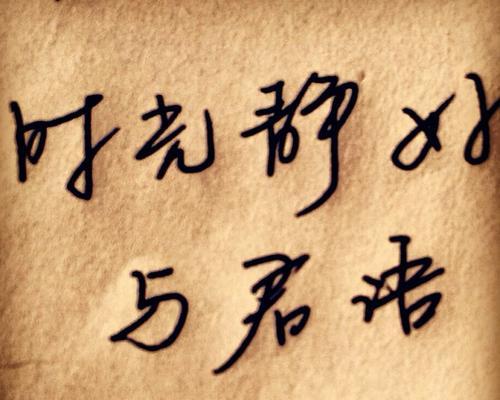 时光静好
与君语